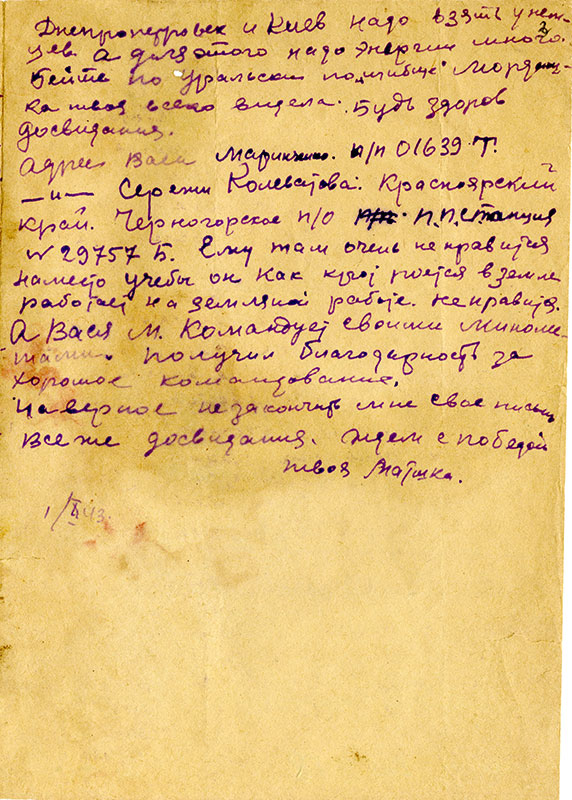 Днепропетровск и Киев надо взять у нем-
цев А для этого надо энергии много.
Бейте по Уральски по
ка твоя всего видела. Будь здоров
досвидания.
Адрес Васи Маринченко. п/п 01639 Т.
—и— Сережи Колеватова. Красноярский
край. Черногорское п/о П.П. Станция
№ 29757 Б. Ему там очень не нравится
наместо учебы он как крот роется в земле
работает на земляной работе. не нравится.
А Вася М. Командует своими миноме-
тами. получил благодарность за
хорошое командование.
Наверное не закончить мне свое письмо
все же досвидания. ждем с победой
твоя Маїшка.
1/X 43.